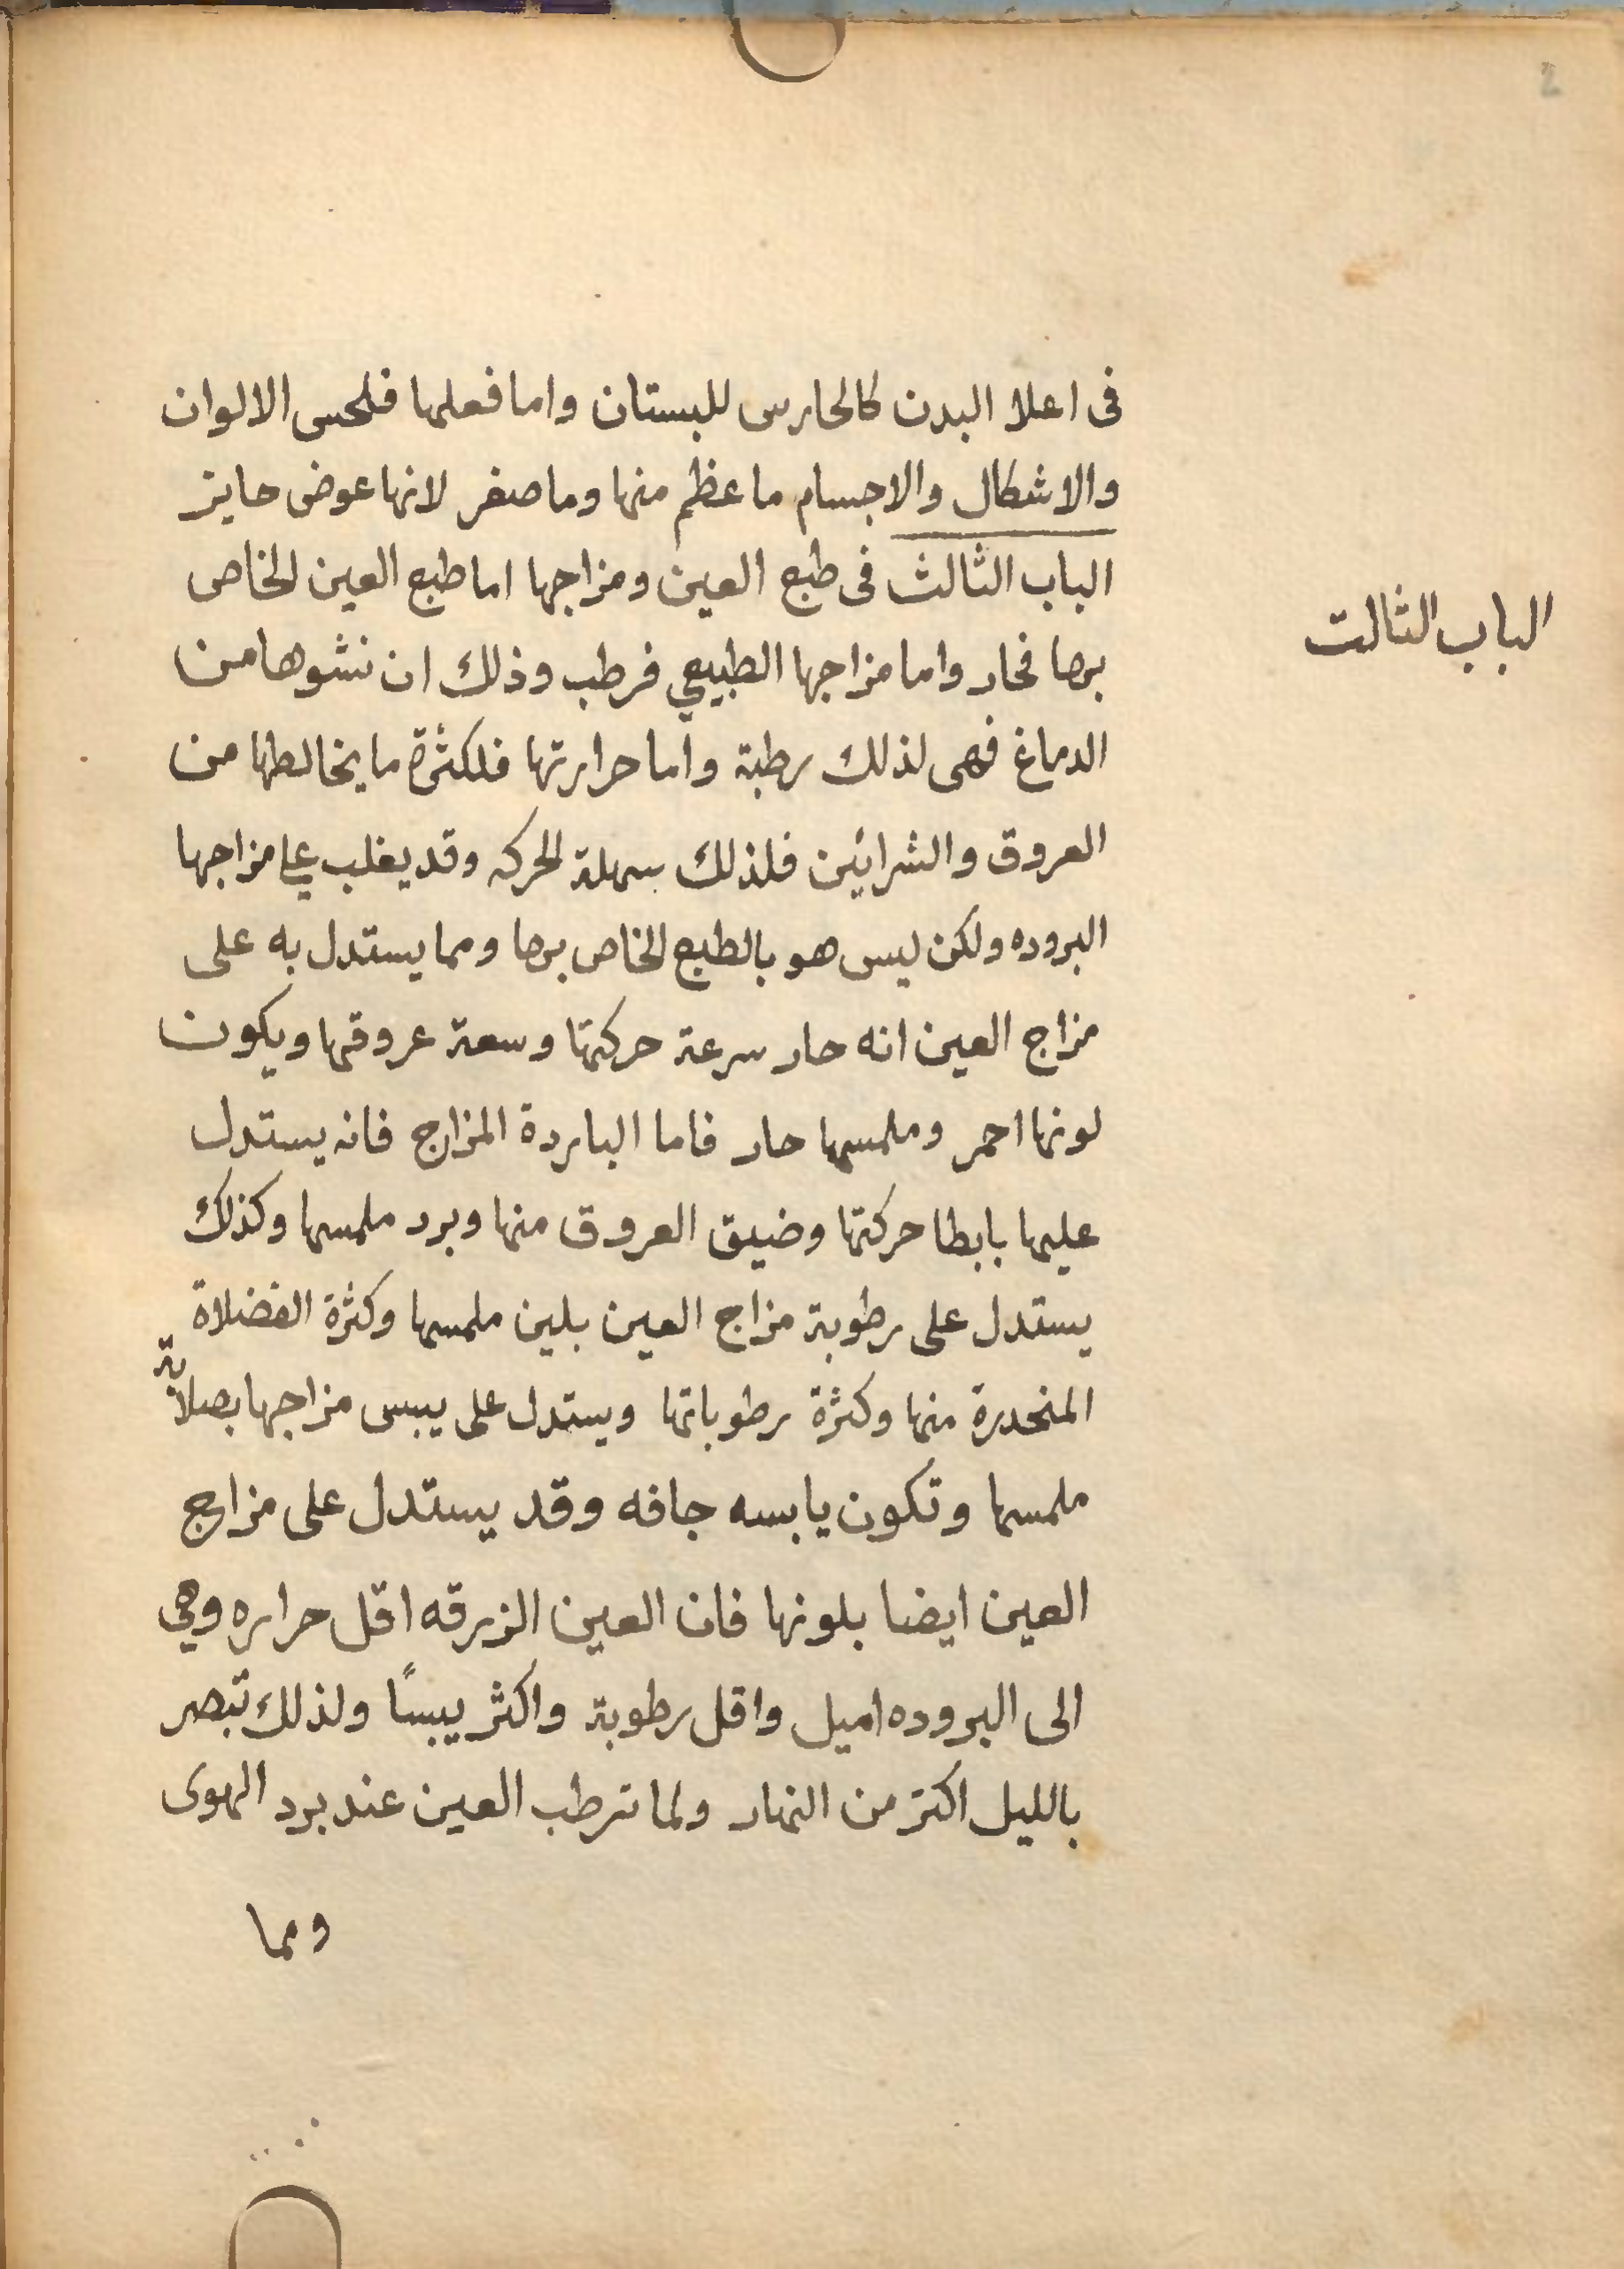 2
فى اعلا البدن كالحارس للبستان واما فعلها فلحس الالوان
والاشكال والاجسام ما عظم منها وما صغر لانها عوض حايز
الباب الثالث فى طبع العين ومزاجها اما طبع العين الخاص
الباب الثالت
بها فحار واما مزاجها الطبيعي فرطب وذلك ان نشوها من
الدماغ فهى لذلك رطبة واما حرارتها فلكثرة ما يخالطها من
العروق والشرائين فلذلك سهلة الحركه وقد يغلب على مزاجها
البروده ولكن ليس هو بالطبع الخاص بها ومما يستدل به على
مزاج العين انه حار سرعة حركتها وسعة عروقها ويكون
لونها احمر وملمسها حار فاما الباردة المزاج فانه يستدل
عليها بابطا حركتها وضيق العروق منها وبرد ملمسها وكذلك
يستدل على رطوبة مزاج العين بلين ملمسها وكثرة الفضلاة
المنحدرة منها وكثرة رطوباتها ويستدل على يبس مزاجها بصلابة
ملمسها وتكون يابسه جافه وقد يستدل على مزاج
العين ايضا بلونها فان العين الزرقه اقل حراره وهي
الى البروده اميل واقل رطوبة واكثر يبسًا ولذلك تبصر
بالليل اكتر من النهار ولما ترطب العين عند برد الهوى
ومما